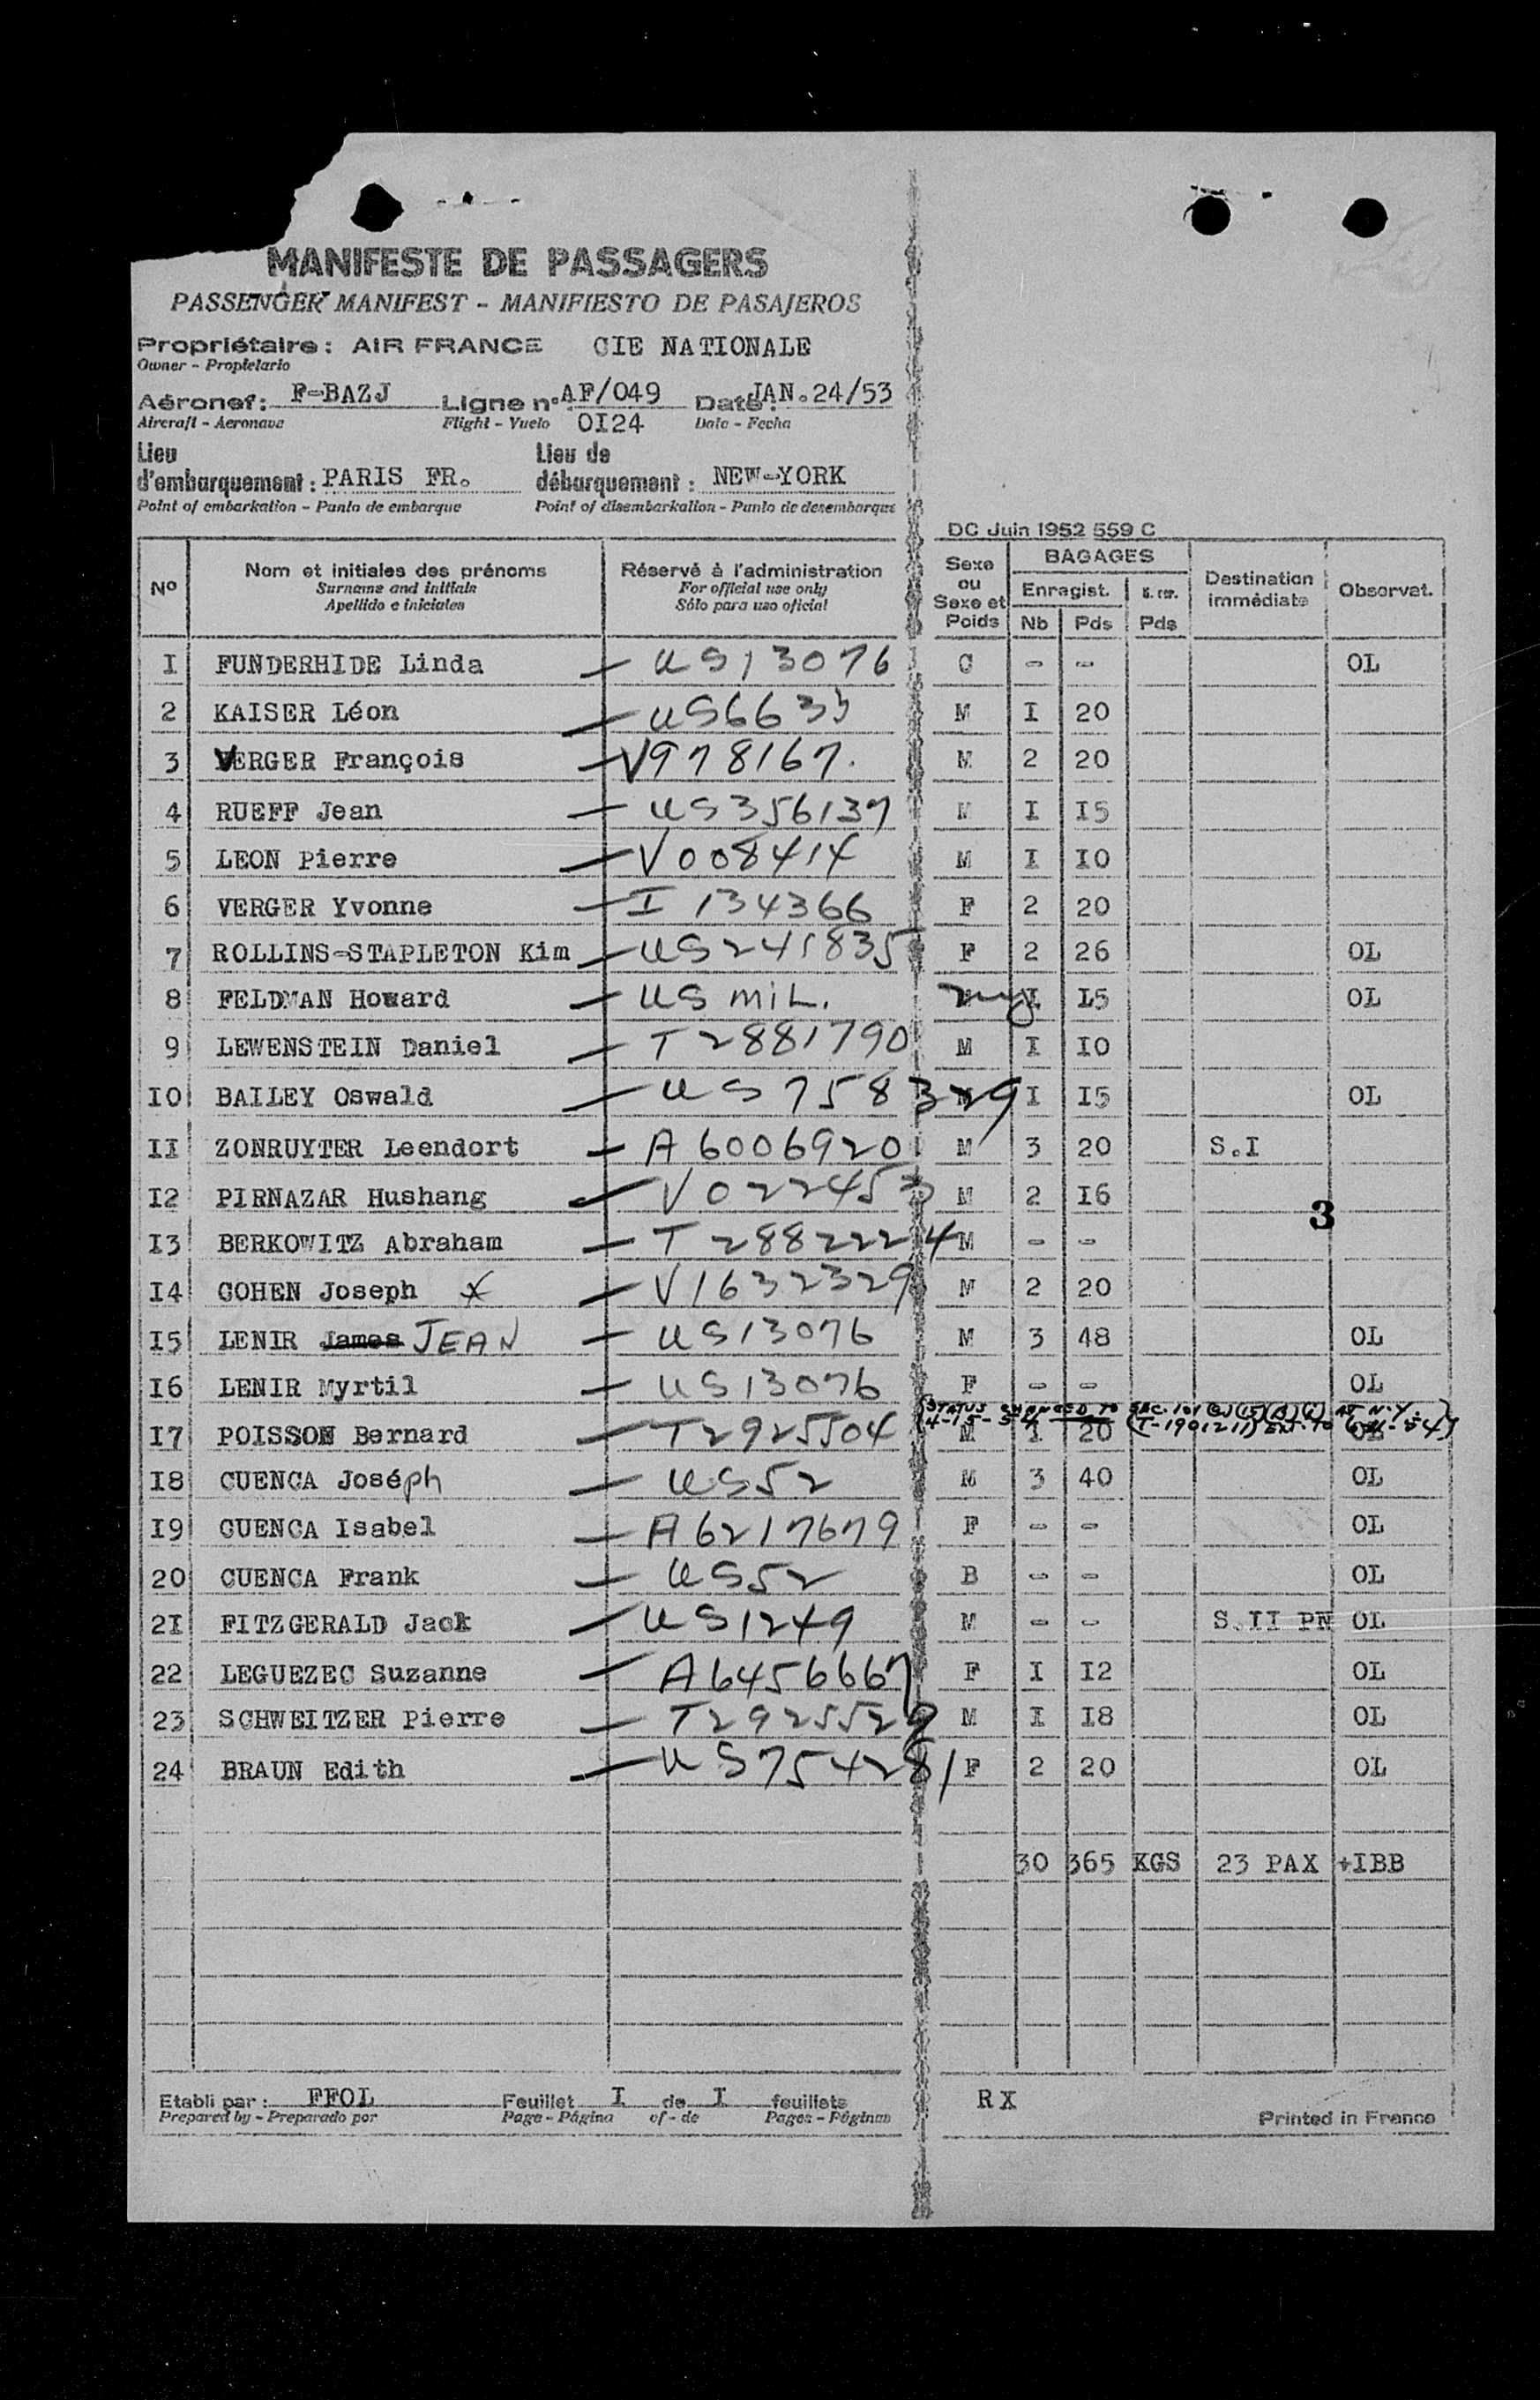 MANIFESTE DE PASSAGERS
PASSENGER MANIFEST - MANIFIESTO DE PASAJEROS
Propriétaire : AIR FRANCE CIE NATIONALE
Owner - Propietario
Aéronef : F-BAZJ Ligne n° AF/049 Date : JAN.24/53
Aircraft - Aeronave Flight - Vuelo 0I24 Date - Fecha
Lieu d'embarquement : PARIS FR. Lieu de débarquement : NEW-YORK
Point of embarkation - Punto de embarque Point of disembarkation - Punto de desembarque
DC Juin 1952 559 C
N° Nom et initiales des prénoms Réservé à l'administration Sexe ou Sexe et Poids BAGAGES Destination immédiate Observat.
Surname and initials For official use only Enregist.
Apellido e iniciales Sólo para uso oficial Nb Pds Pds
I FUNDERHIDE Linda — US13076 C - - OL
2 KAISER Léon — US6635 M I 20
3 VERGER François — V978167. M 2 20
4 RUEFF Jean — US356137 M I I5
5 LEON Pierre — V008414 M I I0
6 VERGER Yvonne — I 134366 F 2 20
7 ROLLINS-STAPLETON Kim — US241835 F 2 26 OL
8 FELDMAN Howard — US MIL. I I5 OL
9 LEWENSTEIN Daniel — T2881790 M I I0
I0 BAILEY Oswald — US758329 I I5 OL
II ZONRUYTER Leendort — A6006920 M 3 20 S.I
I2 PIRNAZAR Hushang — V022453 M 2 I6
3
I3 BERKOWITZ Abraham — T2882224 M - -
I4 COHEN Joseph X — V1632329 M 2 20
I5 LENIR James JEAN — US13076 M 3 48 OL
I6 LENIR Myrtil — US13076 F - - OL
(STATUS CHANGED TO SEC. 101 (a)(15)(A)(i) AT N.Y.
4-15-54 (T-1901211) EXT. TO
I7 POISSON Bernard — T2925504 M I 20 OL
I8 CUENCA Joséph — US52 M 3 40 OL
I9 CUENCA Isabel — A6217679 F - - OL
20 CUENCA Frank — US52 B - - OL
2I FITZGERALD Jack — US1249 M - - S.II PN OL
22 LEGUEZEC Suzanne — A6456667 F I I2 OL
23 SCHWEITZER Pierre — T2925529 M I I8 OL
24 BRAUN Edith — US754281 F 2 20 OL
30 365 KGS 23 PAX +IBB
Etabli par : FFOL Feuillet I de I feuillets RX
Prepared by - Preparado por Page - Página of - de Pages - Páginas Printed in France